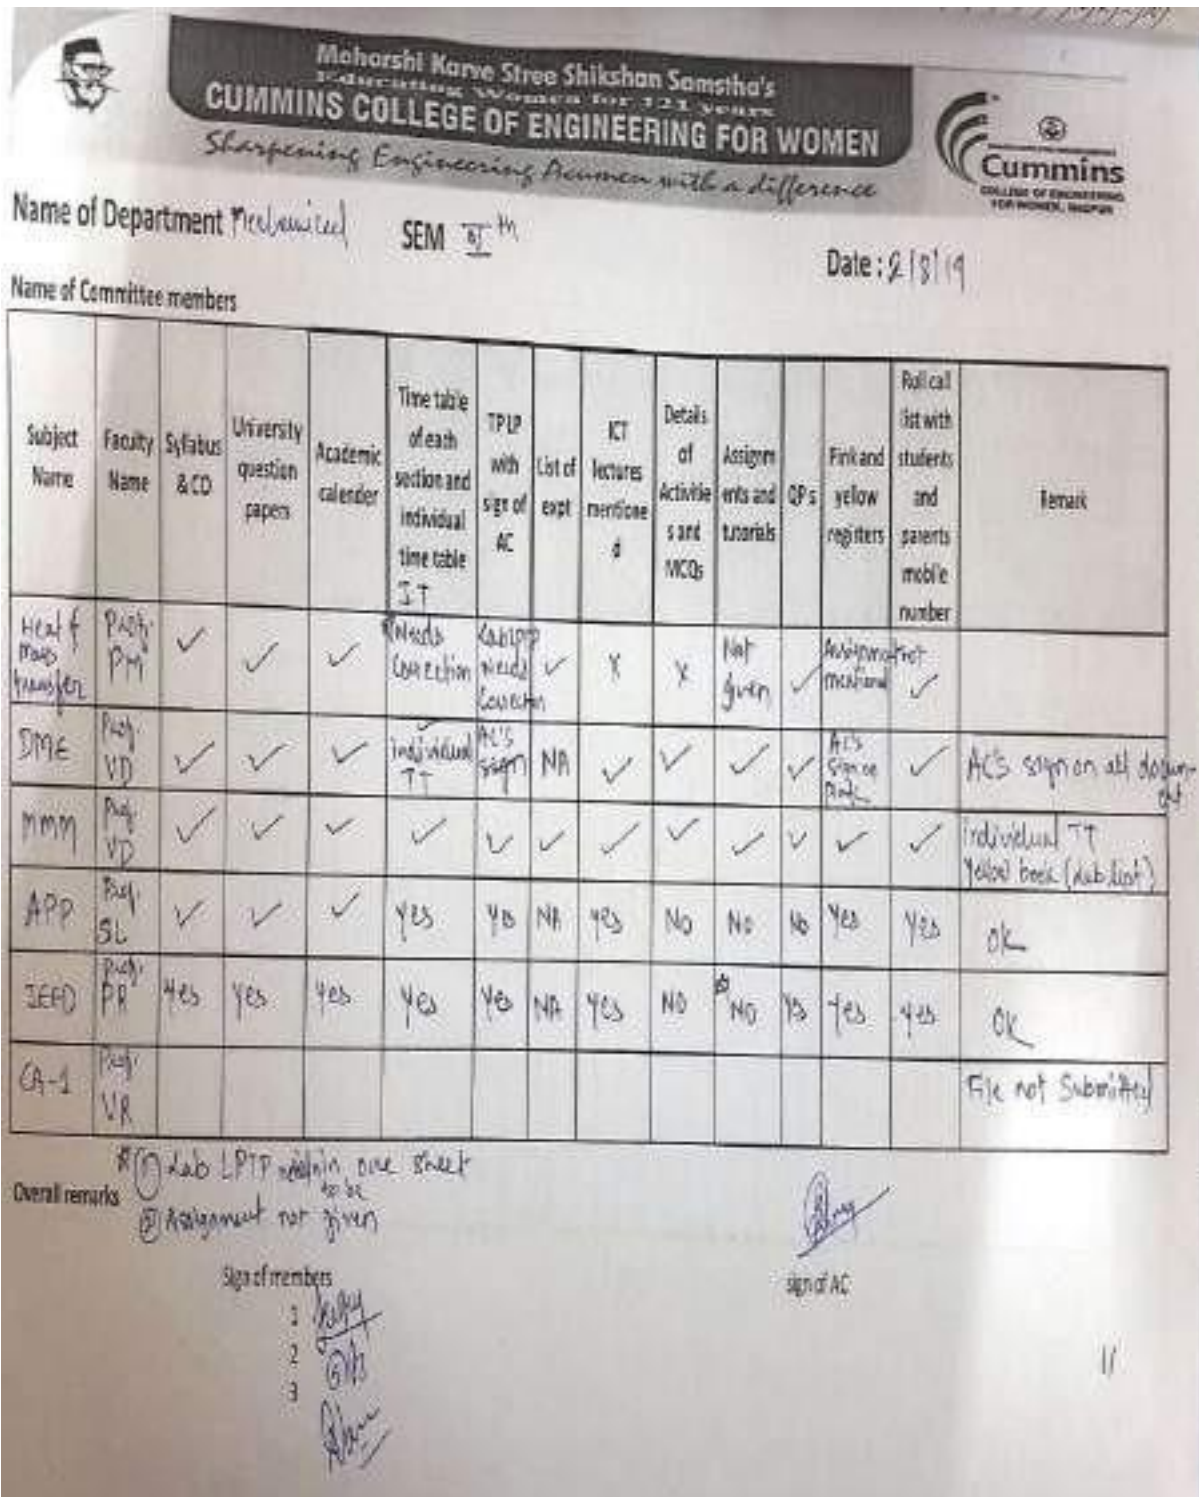 Maharshi Karve Stree Shikshan Samstha's
Educating Women for 121 years
CUMMINS COLLEGE OF ENGINEERING FOR WOMEN
Sharpening Engineering Acumen with a difference
Cummins
COLLEGE OF ENGINEERING
FOR WOMEN, NAGPUR
Name of Department Mechanical SEM th
Date : 2/8/19
Name of Committee members
Subject Name Faculty Name Syllabus & CO University question papers Academic calender Time table of each section and individual time table TPLP with sign of AC List of expt ICT lectures mentioned Details of Activities and MCQs Assignments and tutorials QPs Pink and yellow registers Roll call list with students and parents mobile number Remark
Heat & Mass transfer Prof. PM ✓ ✓ ✓ IT Needs Correction Lab LPTP Needs Correction ✓ X X Not given ✓ Assignment not mentioned ✓
DME Prof. VD ✓ ✓ ✓ ✓ individual TT AC's sign NA ✓ ✓ ✓ ✓ AC's sign on ✓ AC's sign on all document
MMM Prof. VD ✓ ✓ ✓ ✓ ✓ ✓ ✓ ✓ ✓ ✓ ✓ ✓ individual TT Yellow book (Lab list)
APP Prof. SL ✓ ✓ ✓ Yes Yes NA Yes No No No Yes Yes OK
IEFD Prof. PR Yes Yes Yes Yes Yes NA Yes NO NO Yes Yes Yes OK
CA-1 Prof. VR File not Submitted
Overall remarks
① Lab LPTP in one sheet
② Assignment not to be given
Sign of members
sign of AC
1
2
3